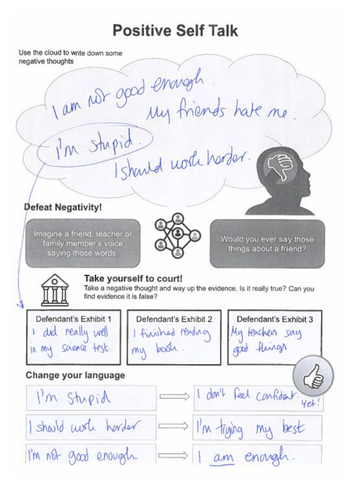 Positive Self Talk
Use the cloud to write down some
negative thoughts
I am not good enough.
My friends hate me.
I'm stupid.
I should work harder.
Defeat Negativity!
Imagine a friend, teacher or
family member's voice
saying those words.
Would you ever say those
things about a friend?
Take yourself to court!
Take a negative thought and way up the evidence. Is it really true? Can you
find evidence it is false?
Defendant's Exhibit 1
I did really well
in my science test
Defendant's Exhibit 2
I finished reading
my book.
Defendant's Exhibit 3
My teachers say
good things
Change your language
I'm stupid
I don't feel confident
yet!
I should work harder
I'm trying my best
I'm not good enough
I am enough.